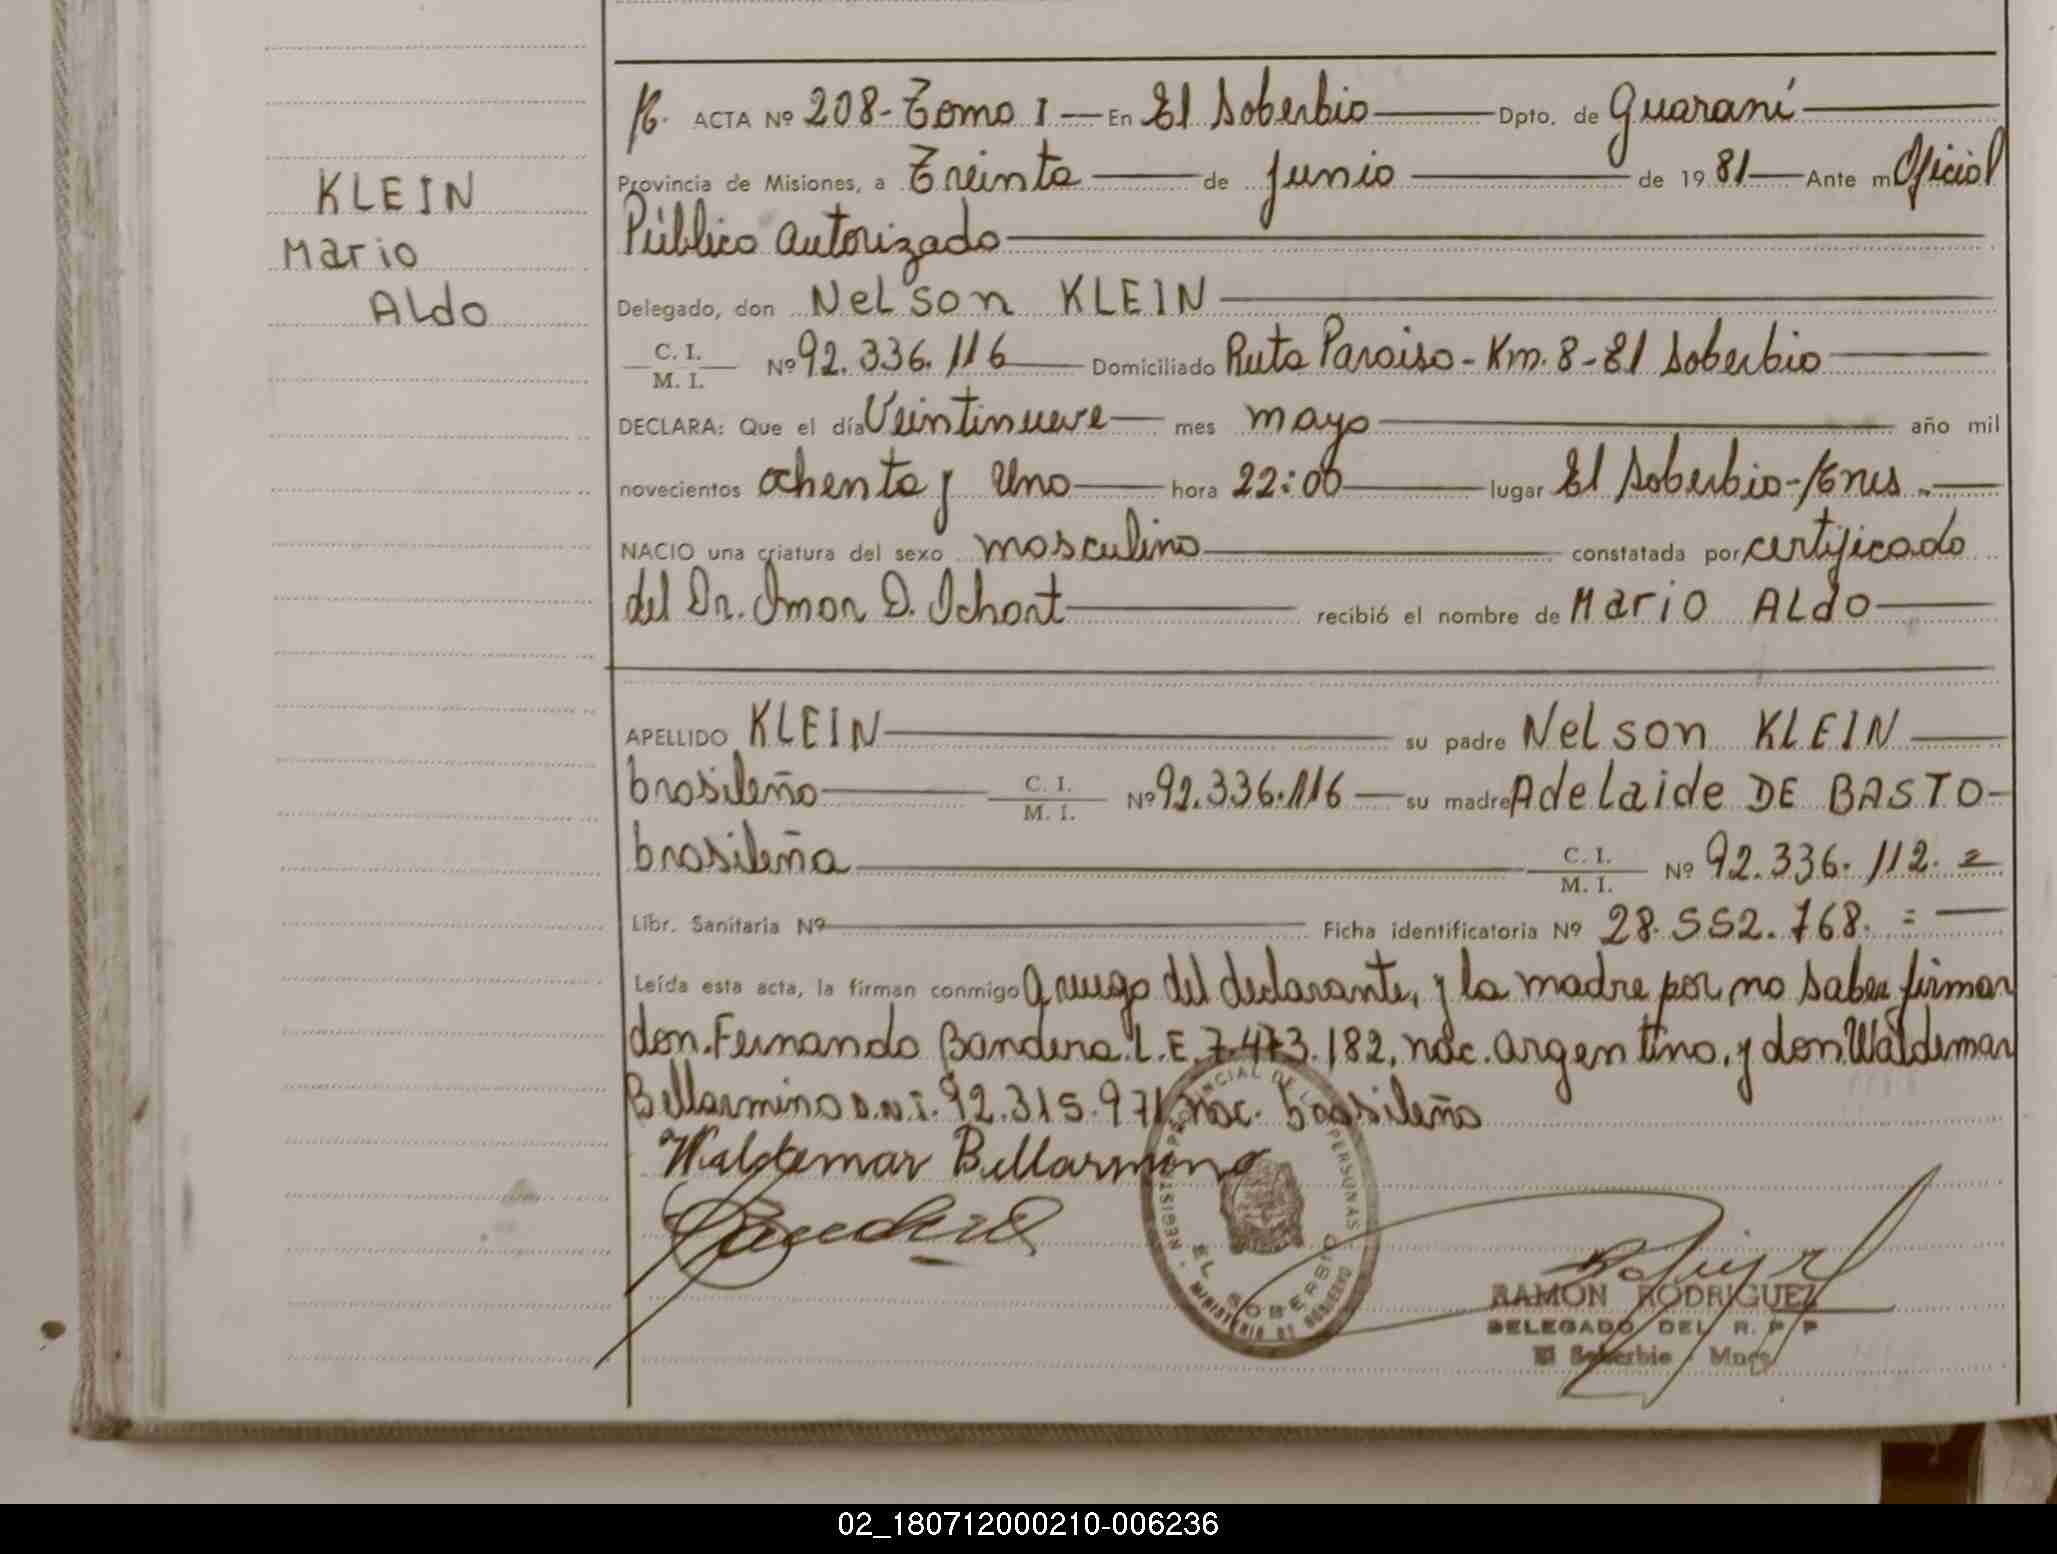 KLEIN
Mario
Aldo
ACTA Nº 208-Tomo I — En El Soberbio — Dpto. de Guaraní
Provincia de Misiones, a Treinta — de junio — de 1981 — Ante mí Oficial
Público autorizado
Delegado, don Nelson KLEIN
C. I. / M. I. Nº 92.336.116 — Domiciliado Ruta Paraiso - Km. 8 - El Soberbio
DECLARA: Que el día Veintinueve — mes mayo — año mil
novecientos ochenta y Uno — hora 22:00 — lugar El Soberbio-
NACIO una criatura del sexo masculino — constatada por certificado
del Dr. Omar D. Ochart — recibió el nombre de Mario Aldo
APELLIDO KLEIN — su padre Nelson KLEIN
brasileño — C. I. / M. I. Nº 92.336.116 — su madre Adelaide DE BASTO-
brasileña — C. I. / M. I. Nº 92.336.112.=
Libr. Sanitaria Nº — Ficha identificatoria Nº 28.552.768.=
Leída esta acta, la firman conmigo a ruego del declarante, y la madre por no saber firmar
don Fernando Bandera L.E. 7.473.182, nac. argentino, y don Waldemar
Bellarmino D.N.I. 92.315.971 nac. brasileño
Waldemar Bellarmino
REGISTRO PROVINCIAL DE LAS PERSONAS
EL SOBERBIO
MINISTERIO DE GOBIERNO
RAMON RODRIGUEZ
DELEGADO DEL R. P. P
El Soberbio - Mnes
02_180712000210-006236